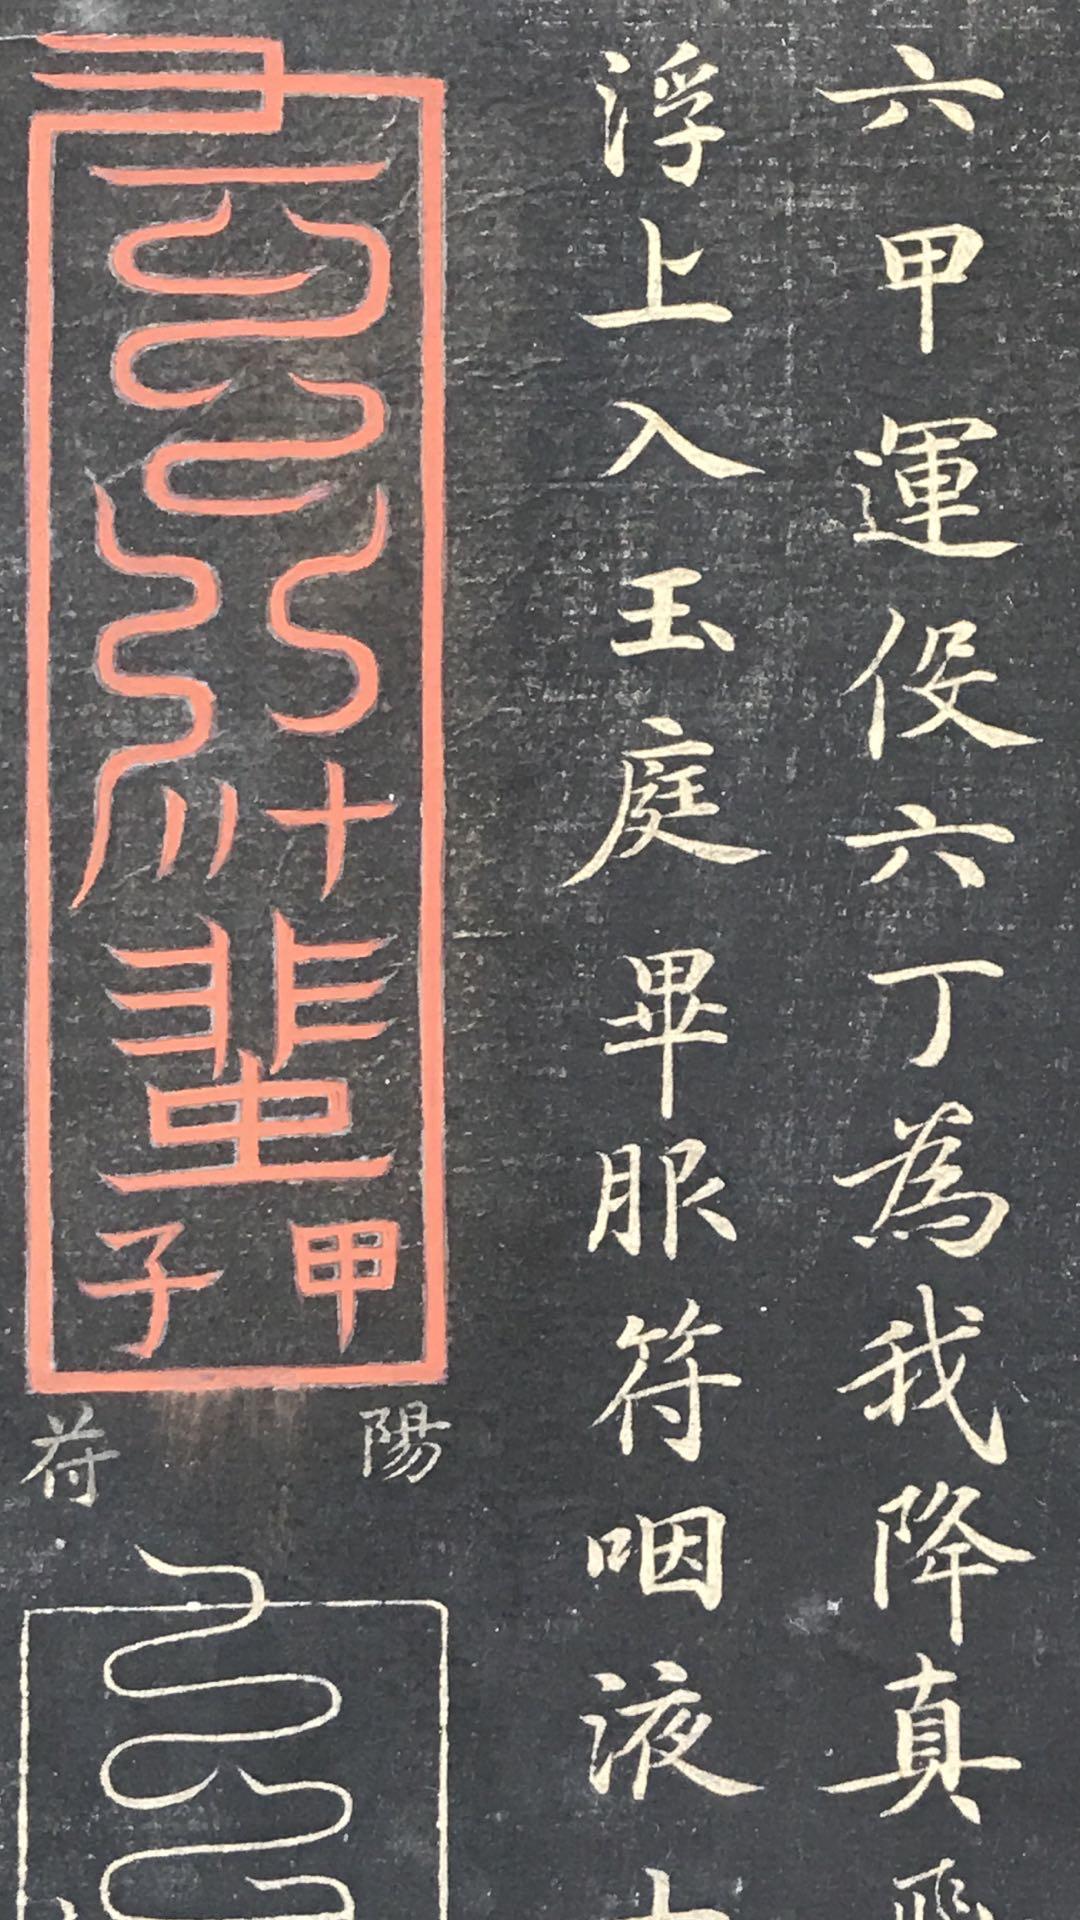 六甲運役六丁為我降真飛
浮上入玉庭畢服符咽液
甲子
陽符